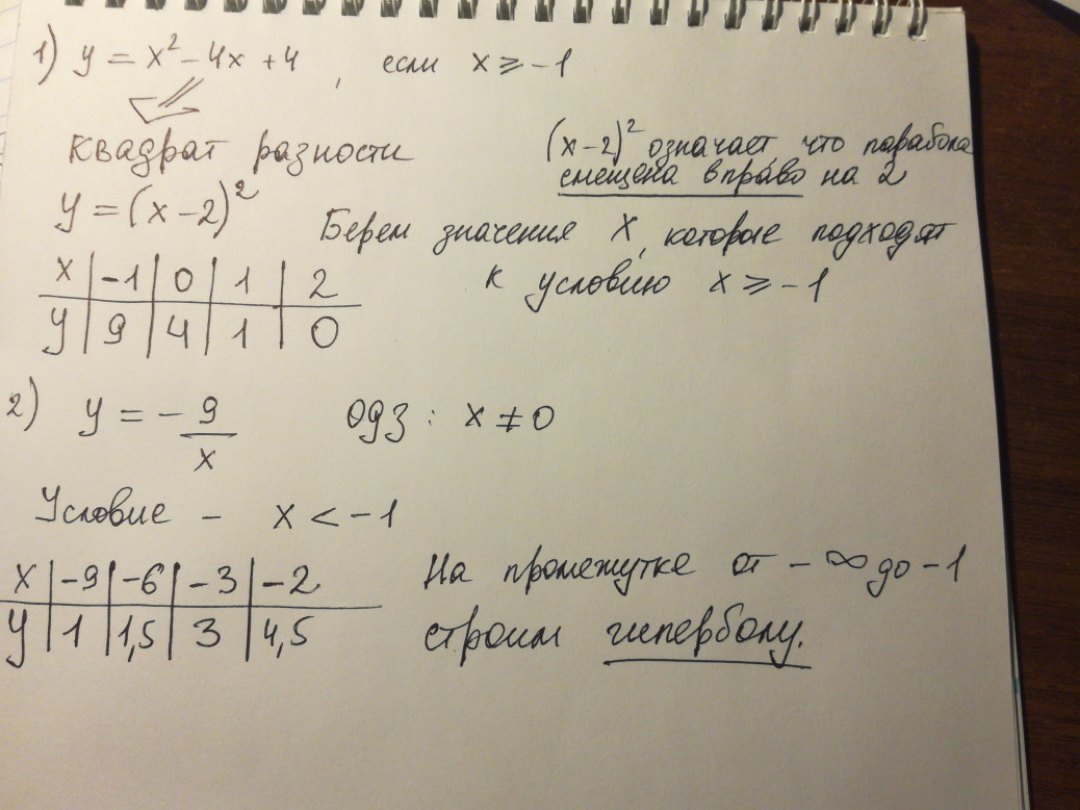 1) y = x² - 4x + 4 , если x ⩾ -1
квадрат разности
(x-2)² означает что парабола
смещена вправо на 2
y = (x-2)²
Берем значения X, которые подходят
к условию x ⩾ -1
x | -1 | 0 | 1 | 2
y | 9 | 4 | 1 | 0
2) y = - 9/x ОДЗ : x ≠ 0
Условие - x < -1
x | -9 | -6 | -3 | -2
y | 1 | 1,5 | 3 | 4,5
На промежутке от -∞ до -1
строим гиперболу.